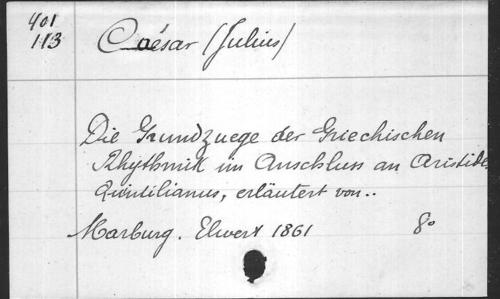 401
113
Caésar (Julius)
Die Grundzuege der Griechischen
Rhythmik im Anschluss an Aristide
Quintilianus, erläutert von..
Marburg. Elwert 1861 8º